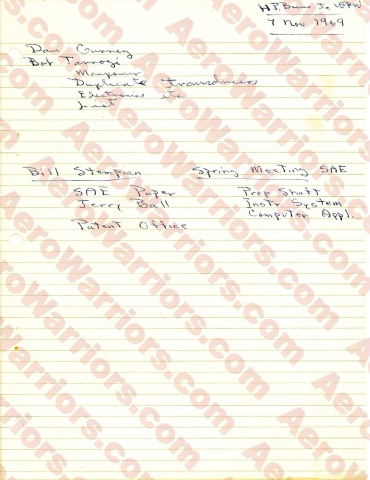 7 Nov 1969
Dan Gurney
Bob
Manpower
Duplicate Transducers
Electronics etc
List
Bill Stempian Spring Meeting SAE
SAE Paper Prop Shaft
Jerry Ball Instr System
Computer Appl.
Patent Office
AeroWarriors.com